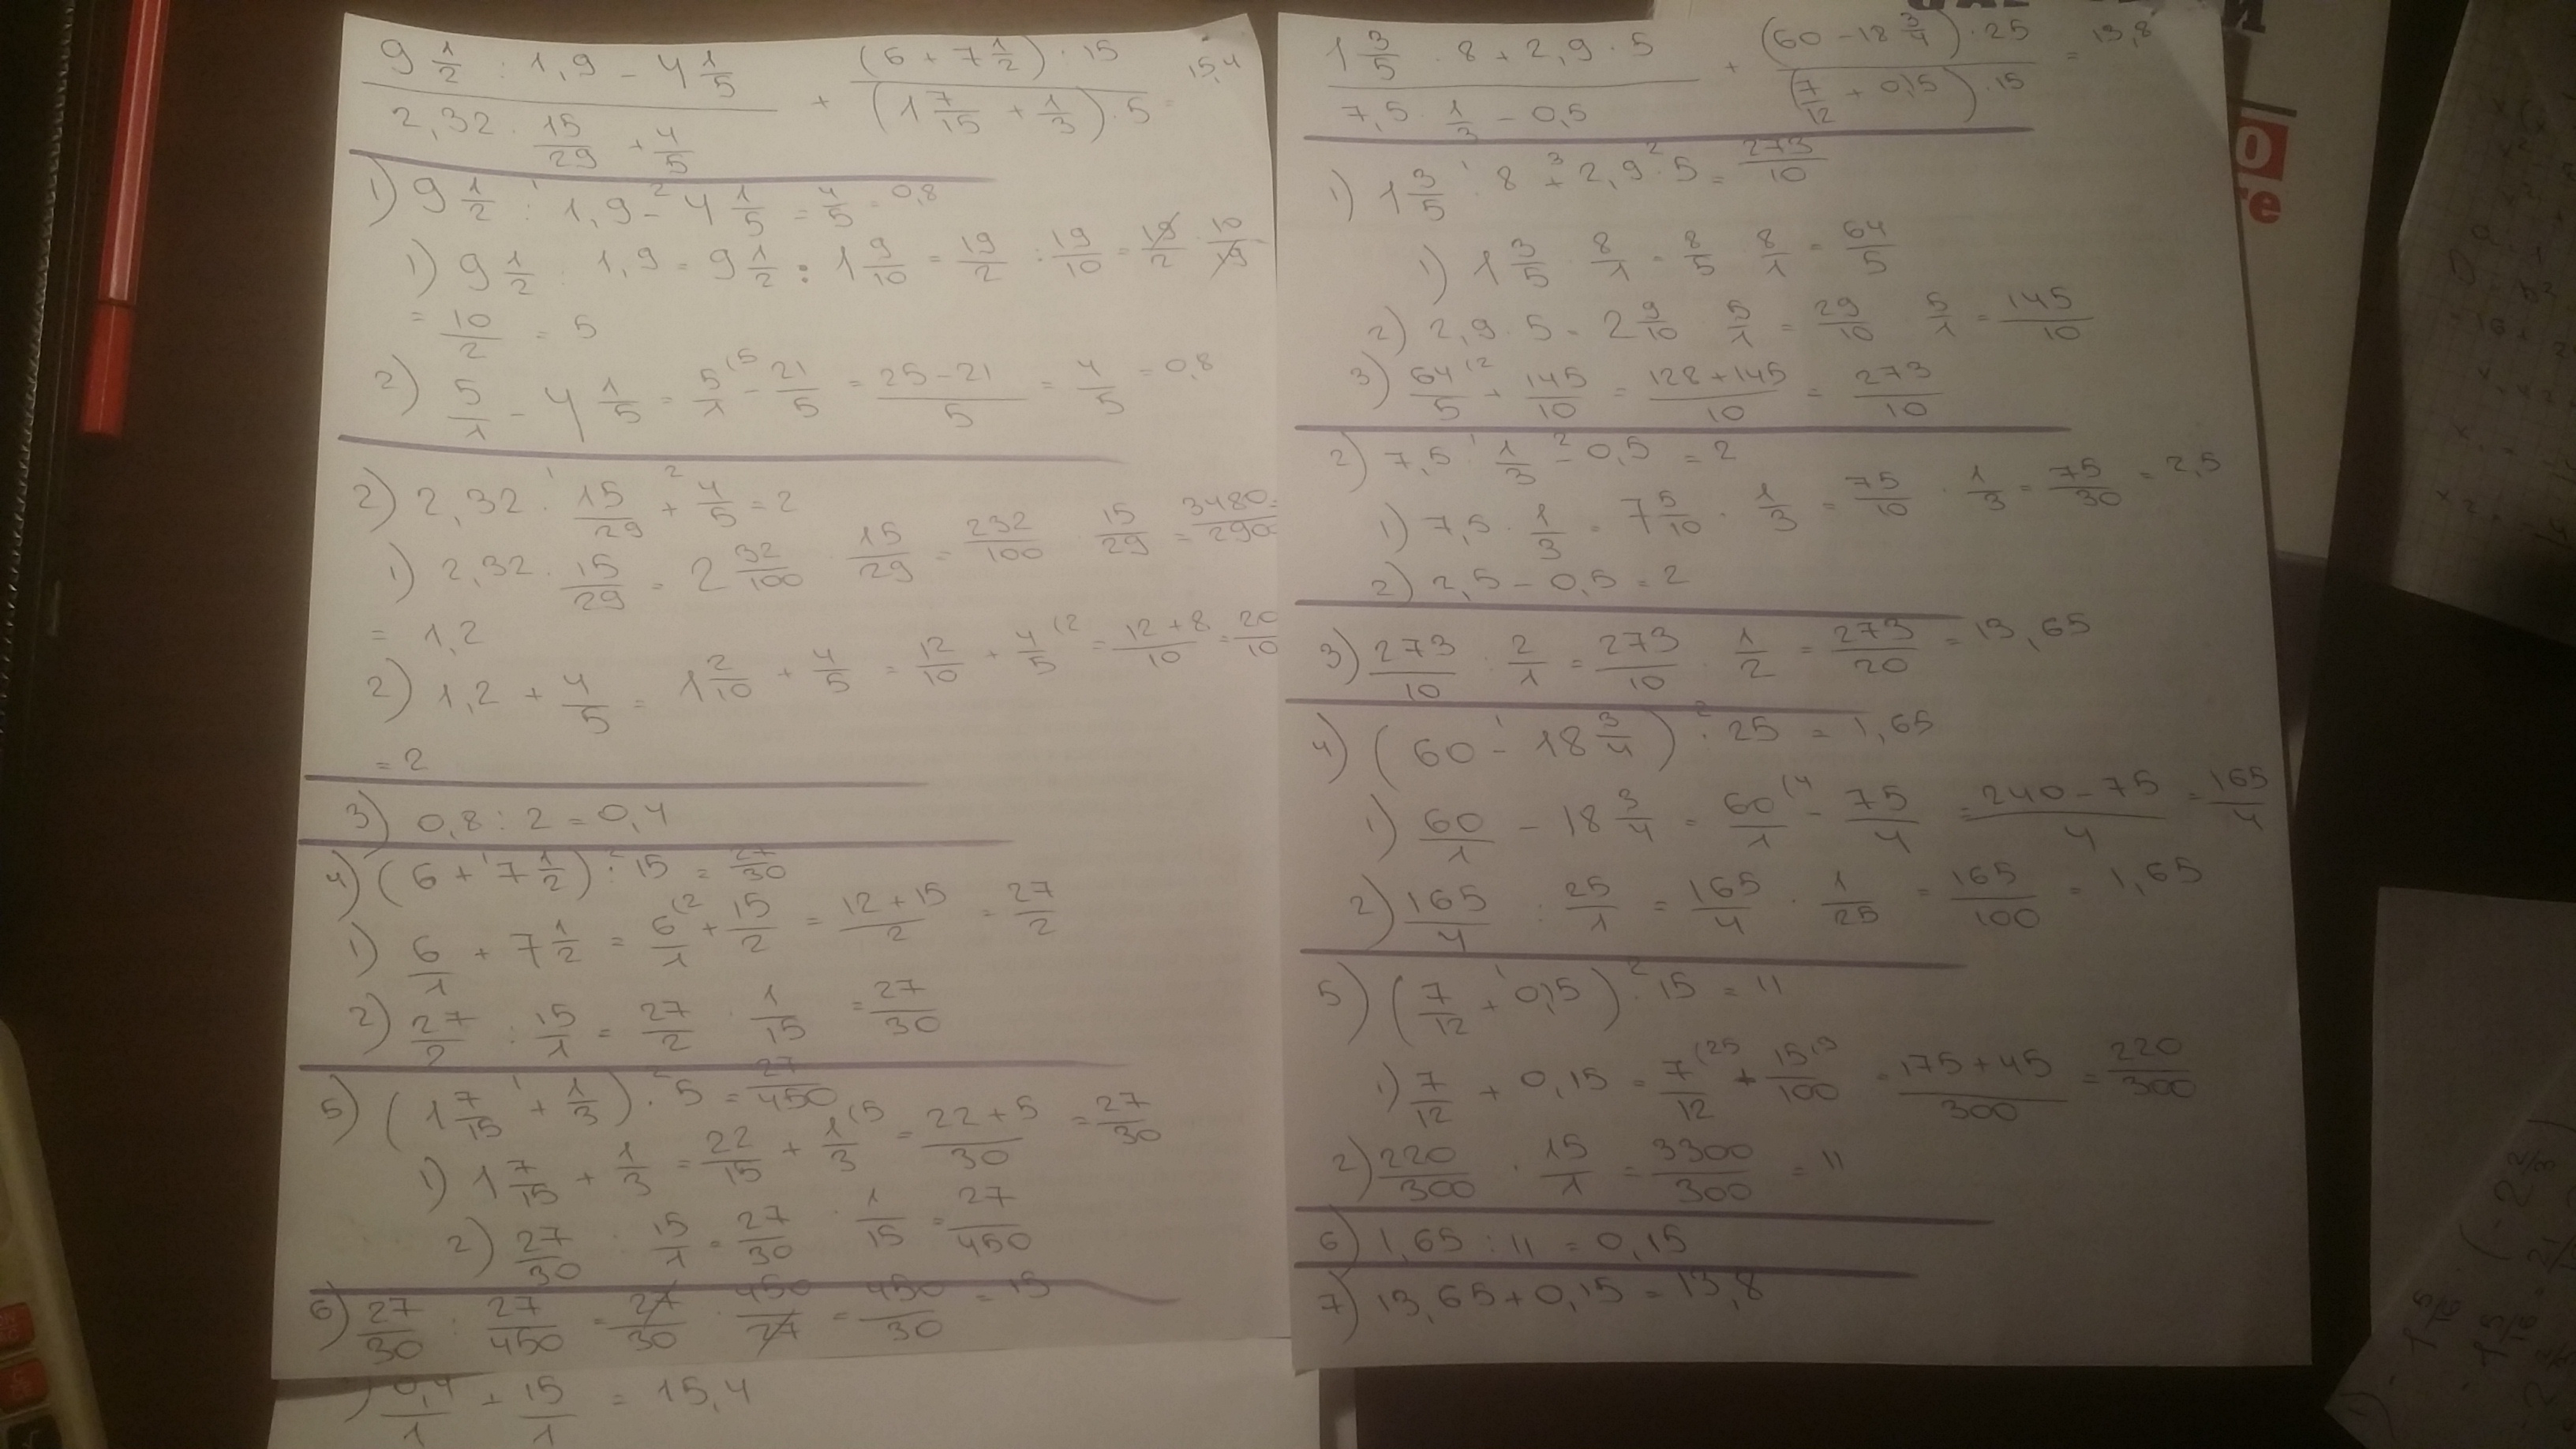 9 1/2 : 1,9 - 4 1/5 / 2,32 · 15/29 + 4/5 + (6 + 7 1/2) : 15 / (1 7/15 + 1/3) · 5 = 15,4
1) 9 1/2 : 1,9 - 4 1/5 = 4/5 = 0,8
1) 9 1/2 : 1,9 = 9 1/2 : 1 9/10 = 19/2 : 19/10 = 19/2 · 10/19
= 10/2 = 5
2) 5/1 - 4 1/5 = 5/1 (5 - 21/5 = 25-21/5 = 4/5 = 0,8
2) 2,32 · 15/29 + 4/5 = 2
1) 2,32 · 15/29 = 2 32/100 · 15/29 = 232/100 · 15/29 = 3480/2900
= 1,2
2) 1,2 + 4/5 = 1 2/10 + 4/5 = 12/10 + 4/5 (2 = 12+8/10 = 20/10
= 2
3) 0,8 : 2 = 0,4
4) (6 + 7 1/2) : 15 = 27/30
1) 6/1 + 7 1/2 = 6/1 (2 + 15/2 = 12+15/2 = 27/2
2) 27/2 : 15/1 = 27/2 · 1/15 = 27/30
5) (1 7/15 + 1/3) · 5 = 27/450
1) 1 7/15 + 1/3 = 22/15 + 1/3 (5 = 22+5/30 = 27/30
2) 27/30 · 15/1 = 27/30 · 1/15 = 27/450
6) 27/30 : 27/450 = 27/30 · 450/27 = 450/30 = 15
) 0,4/1 + 15/1 = 15,4
1 3/5 · 8 + 2,9 · 5 / 7,5 · 1/3 - 0,5 + (60 - 18 3/4) : 25 / (7/12 + 0,15) · 15 = 13,8
1) 1 3/5 · 8 + 2,9 · 5 = 273/10
1) 1 3/5 · 8/1 = 8/5 · 8/1 = 64/5
2) 2,9 · 5 = 2 9/10 · 5/1 = 29/10 · 5/1 = 145/10
3) 64/5 (2 + 145/10 = 128+145/10 = 273/10
2) 7,5 · 1/3 - 0,5 = 2
1) 7,5 · 1/3 = 7 5/10 · 1/3 = 75/10 · 1/3 = 75/30 = 2,5
2) 2,5 - 0,5 = 2
3) 273/10 : 2/1 = 273/10 · 1/2 = 273/20 = 13,65
4) (60 - 18 3/4) : 25 = 1,65
1) 60/1 - 18 3/4 = 60/1 (4 - 75/4 = 240-75/4 = 165/4
2) 165/4 : 25/1 = 165/4 · 1/25 = 165/100 = 1,65
5) (7/12 + 0,15) · 15 = 11
1) 7/12 + 0,15 = 7/12 (25 + 15/100 (3 = 175+45/300 = 220/300
2) 220/300 · 15/1 = 3300/300 = 11
6) 1,65 : 11 = 0,15
7) 13,65 + 0,15 = 13,8